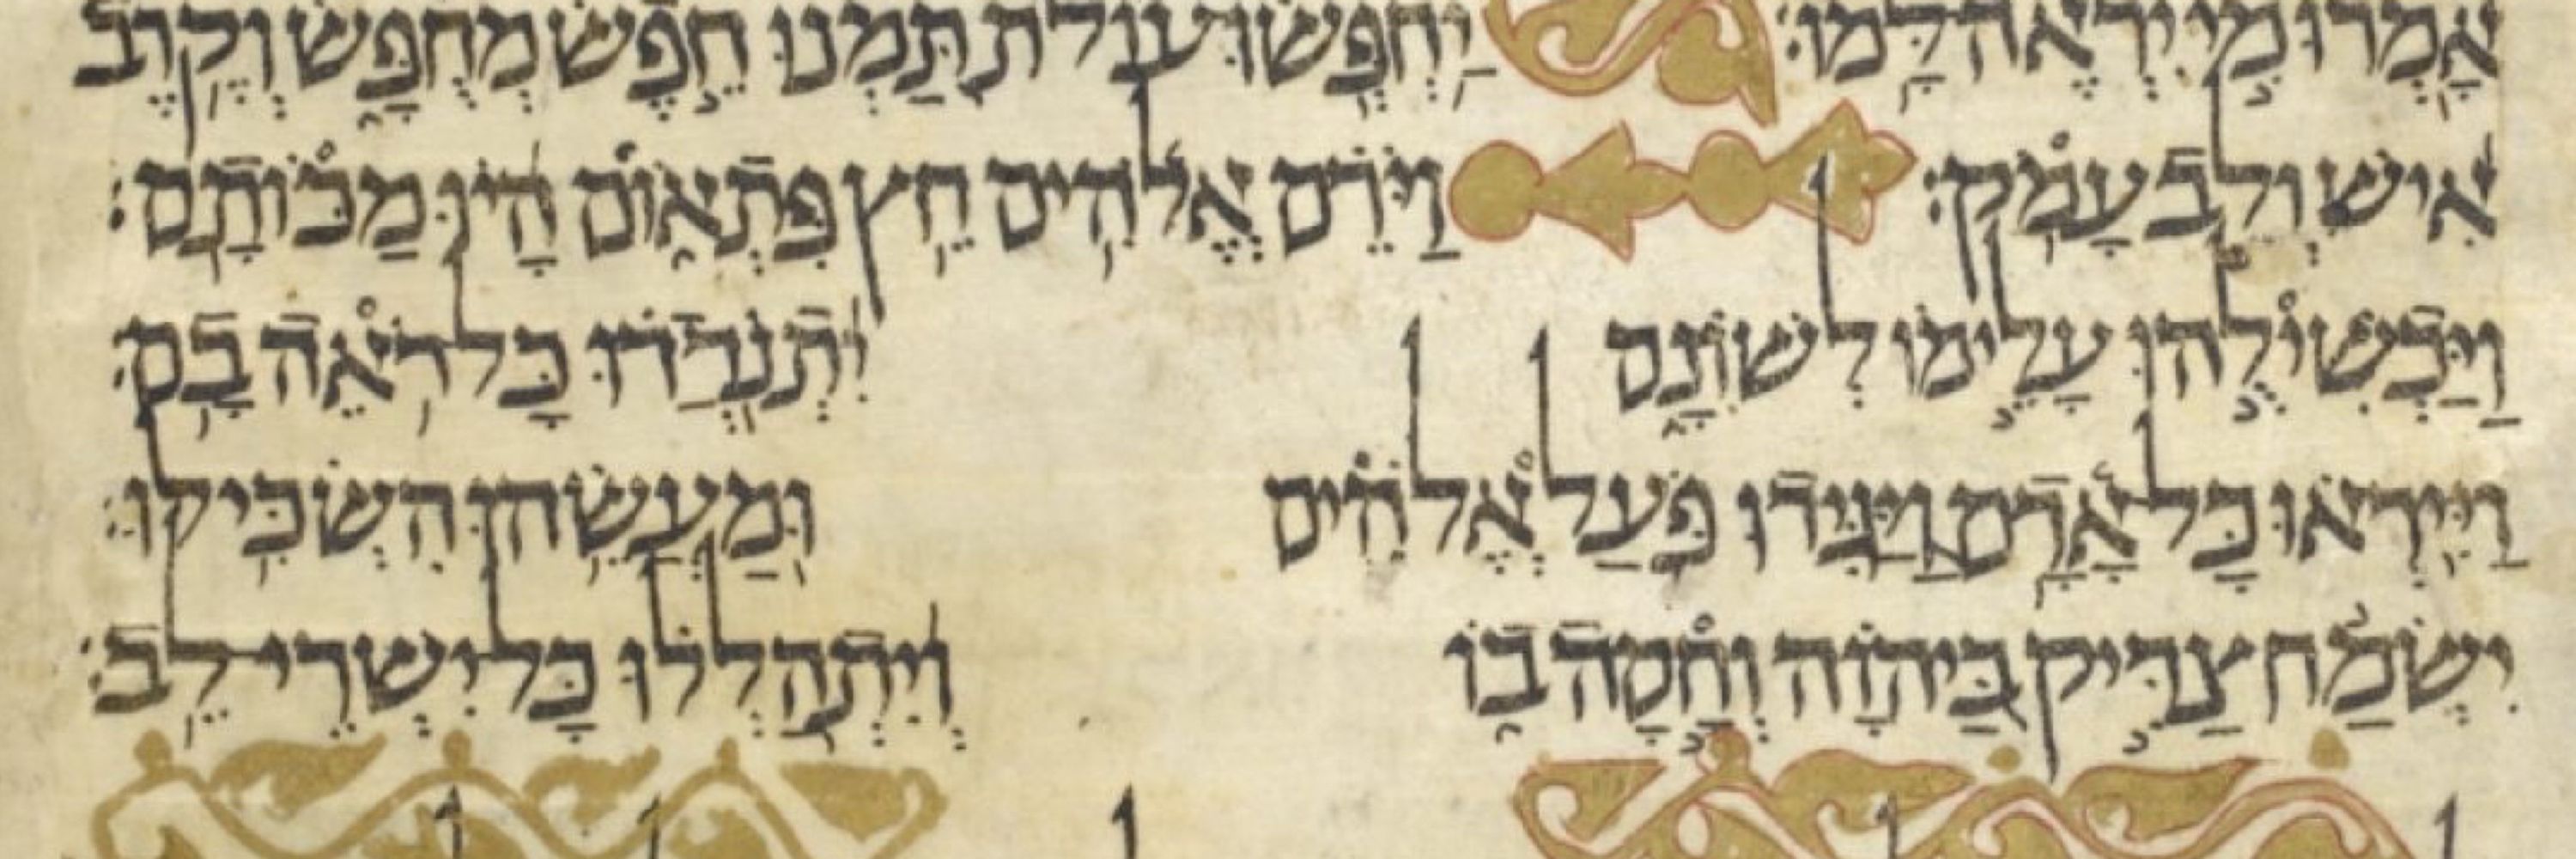 אָמְרוּ מִי יִרְאֶה לָּמוֹ׃ יַחְפְּשׂוּ עוֹלֹת תַּמְנוּ חֵפֶשׂ מְחֻפָּשׂ וְקֶרֶב
אִישׁ וְלֵב עָמֹק׃ וַיֹּרֵם אֱלֹהִים חֵץ פִּתְאוֹם הָיוּ מַכּוֹתָם׃
וַיַּכְשִׁילֻהוּ עָלֵימוֹ לְשׁוֹנָם יִתְנֹדֲדוּ כָּל רֹאֵה בָם׃
וַיִּירְאוּ כָּל אָדָם וַיַּגִּידוּ פֹּעַל אֱלֹהִים וּמַעֲשֵׂהוּ הִשְׂכִּילוּ׃
יִשְׂמַח צַדִּיק בַּיהוָה וְחָסָה בוֹ וְיִתְהַלְלוּ כָּל יִשְׁרֵי לֵב׃